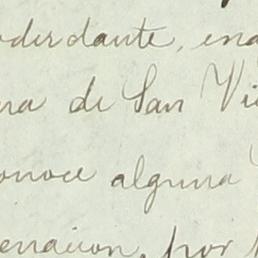 oderdante, ena
ra de San Vi
onoce alguna
enacion, por